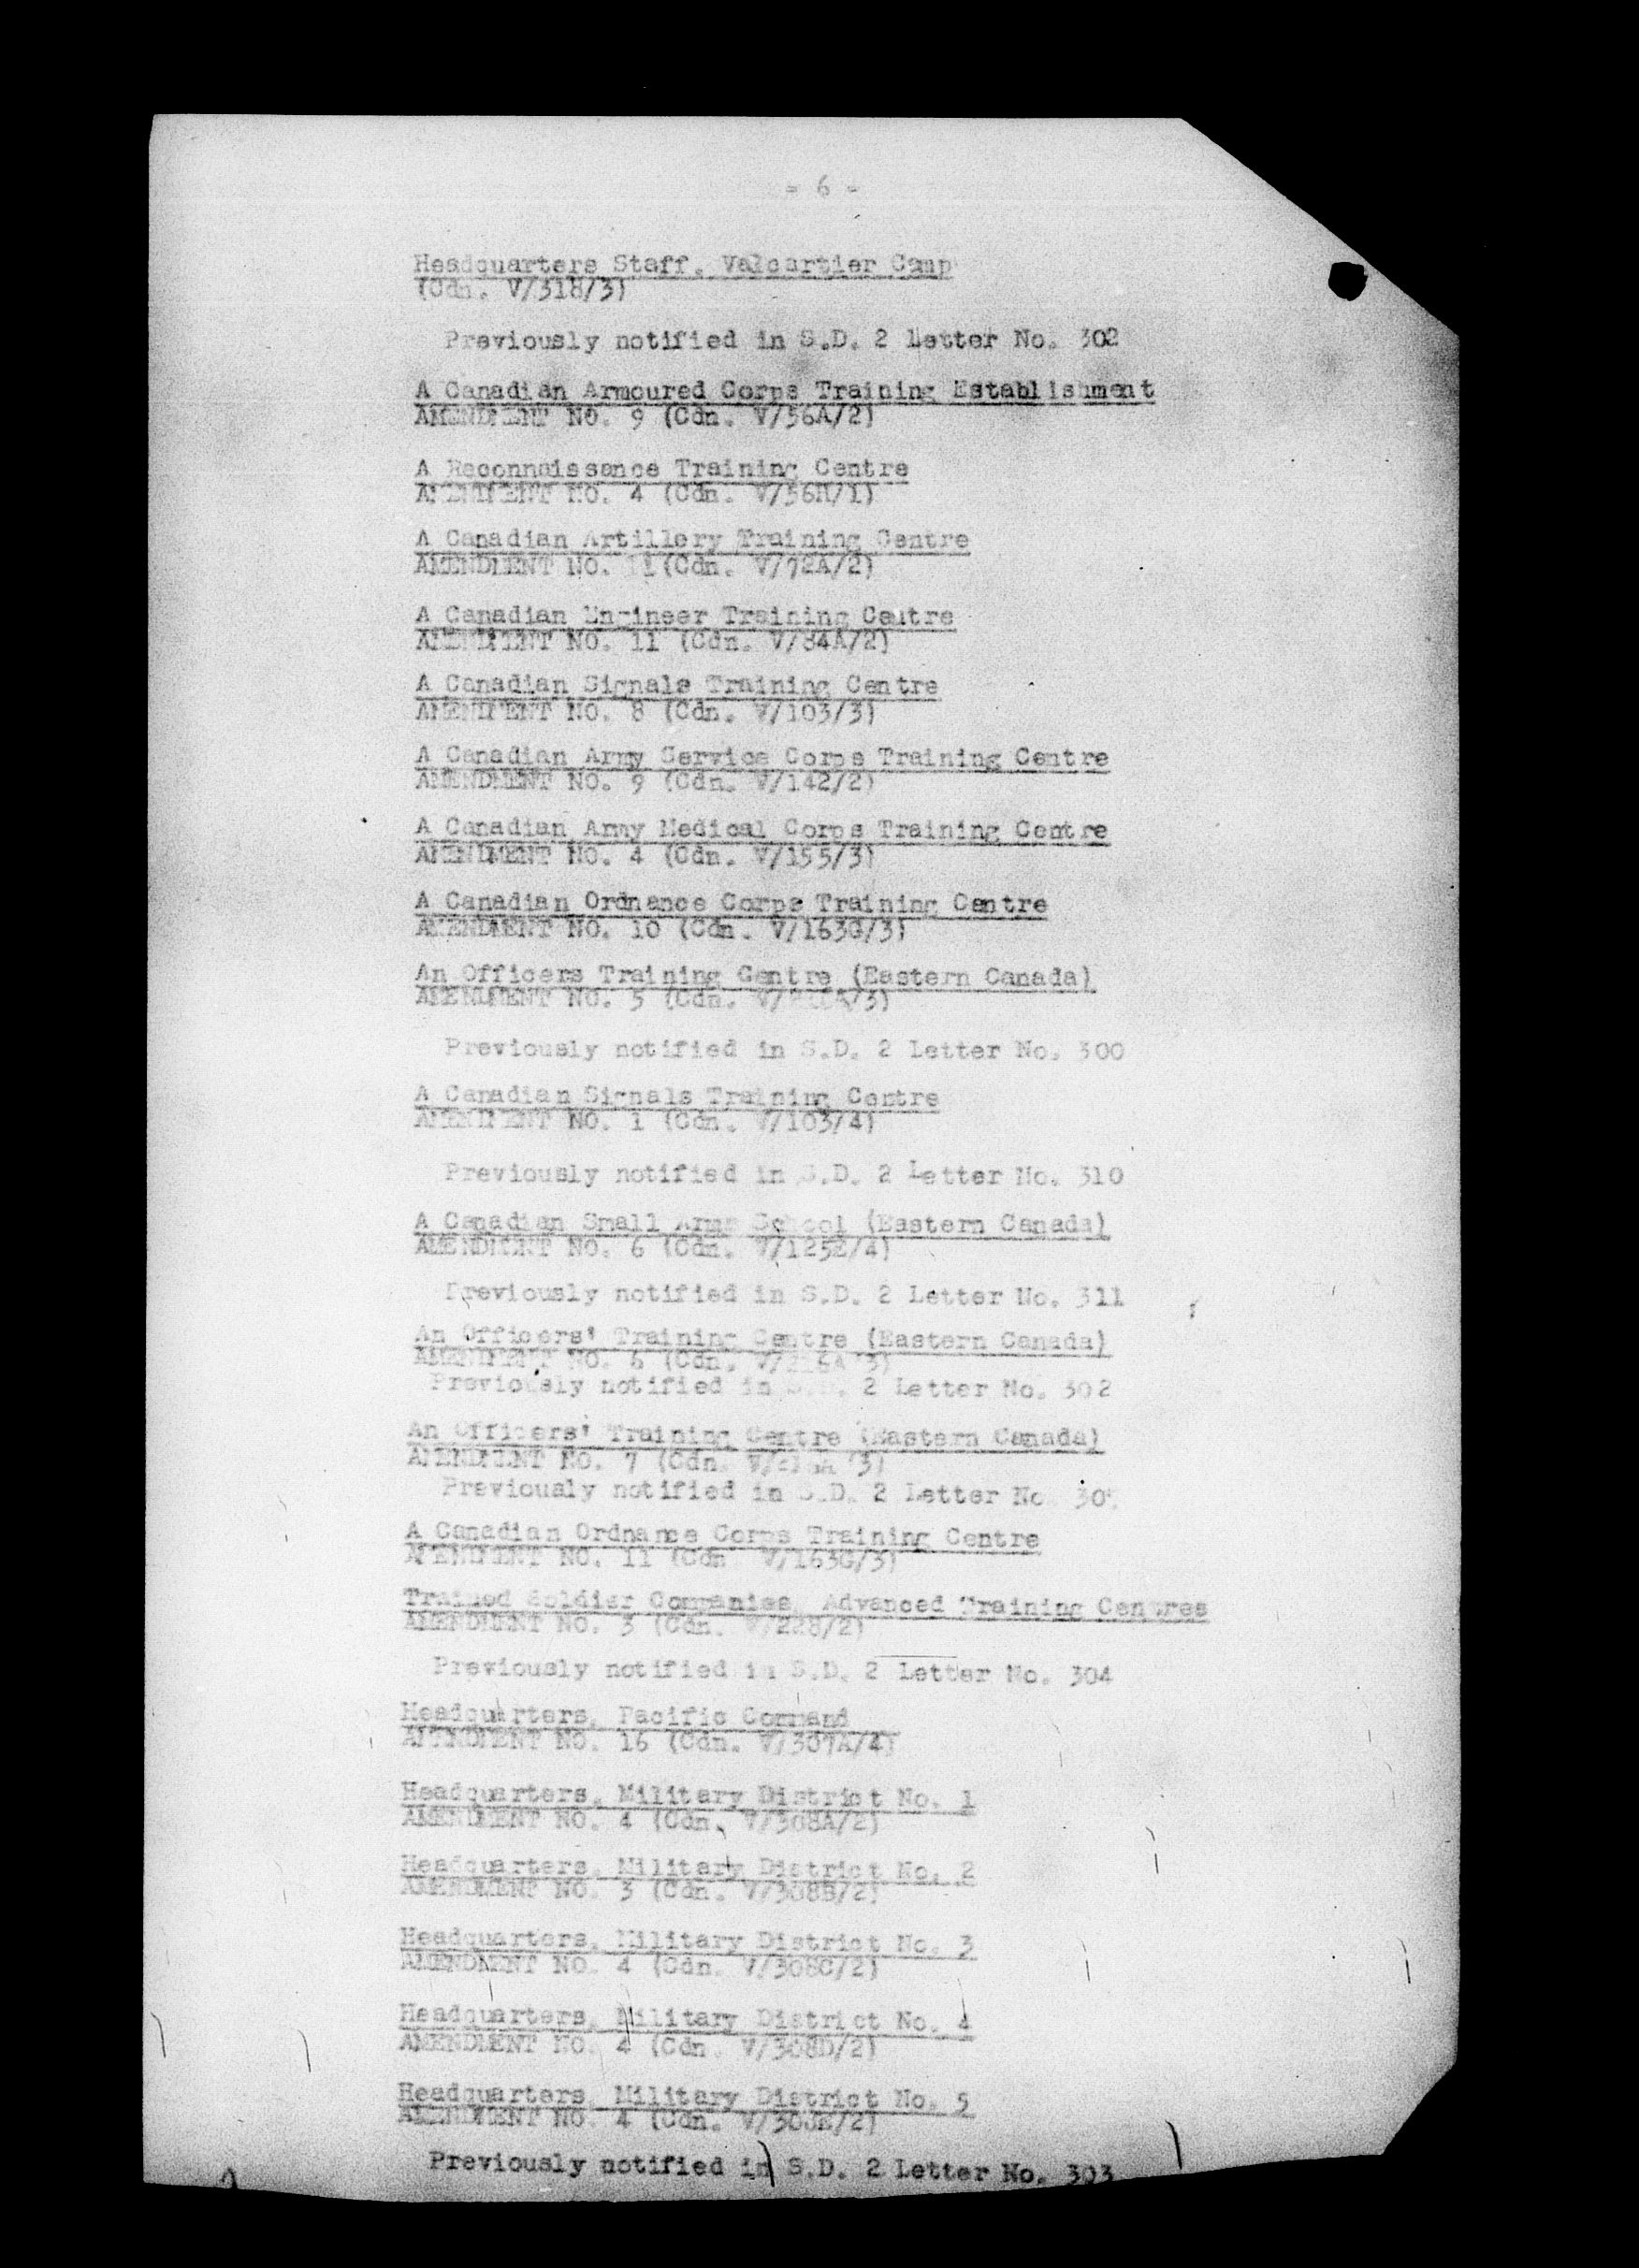 - 6 -
Headquarters Staff, Valcartier Camp
(Cdn. V/318/3)
Previously notified in S.D. 2 Letter No. 302
A Canadian Armoured Corps Training Establishment
AMENDMENT NO. 9 (Cdn. V/56A/2)
A Reconnaissance Training Centre
AMENDMENT NO. 4 (Cdn. V/56H/1)
A Canadian Artillery Training Centre
AMENDMENT NO. 11 (Cdn. V/72A/2)
A Canadian Engineer Training Centre
AMENDMENT NO. 11 (Cdn. V/84A/2)
A Canadian Signals Training Centre
AMENDMENT NO. 8 (Cdn. V/103/3)
A Canadian Army Service Corps Training Centre
AMENDMENT NO. 9 (Cdn. V/142/2)
A Canadian Army Medical Corps Training Centre
AMENDMENT NO. 4 (Cdn. V/155/3)
A Canadian Ordnance Corps Training Centre
AMENDMENT NO. 10 (Cdn. V/163G/3)
An Officers Training Centre (Eastern Canada)
AMENDMENT NO. 5 (Cdn.
Previously notified in S.D. 2 Letter No. 300
A Canadian Signals Training Centre
AMENDMENT NO. 1 (Cdn. V/103/4)
Previously notified in S.D. 2 Letter No. 310
A Canadian Small Arms School (Eastern Canada)
AMENDMENT NO. 6 (Cdn. V/125E/4)
Previously notified in S.D. 2 Letter No. 311
An Officers' Training Centre (Eastern Canada)
AMENDMENT NO. 6 (Cdn.
Previously notified in S.D. 2 Letter No. 302
An Officers' Training Centre (Eastern Canada)
AMENDMENT NO. 7 (Cdn.
Previously notified in S.D. 2 Letter No
A Canadian Ordnance Corps Training Centre
AMENDMENT NO. 11 (Cdn V/163G/3)
Trained Soldier Companies, Advanced Training Centres
AMENDMENT NO. 3 (Cdn. V/228/2)
Previously notified in S.D. 2 Letter No. 304
Headquarters, Pacific Command
AMENDMENT NO. 16 (Cdn. V/307A/4)
Headquarters, Military District No. 1
AMENDMENT NO. 4 (Cdn. V/308A/2)
Headquarters, Military District No. 2
AMENDMENT NO. 3 (Cdn. V/308B/2)
Headquarters, Military District No. 3
AMENDMENT NO. 4 (Cdn. V/308C/2)
Headquarters, Military District No. 4
AMENDMENT NO. 4 (Cdn. V/308D/2)
Headquarters, Military District No. 5
AMENDMENT NO. 4 (Cdn. V/308E/2)
Previously notified in S.D. 2 Letter No. 303